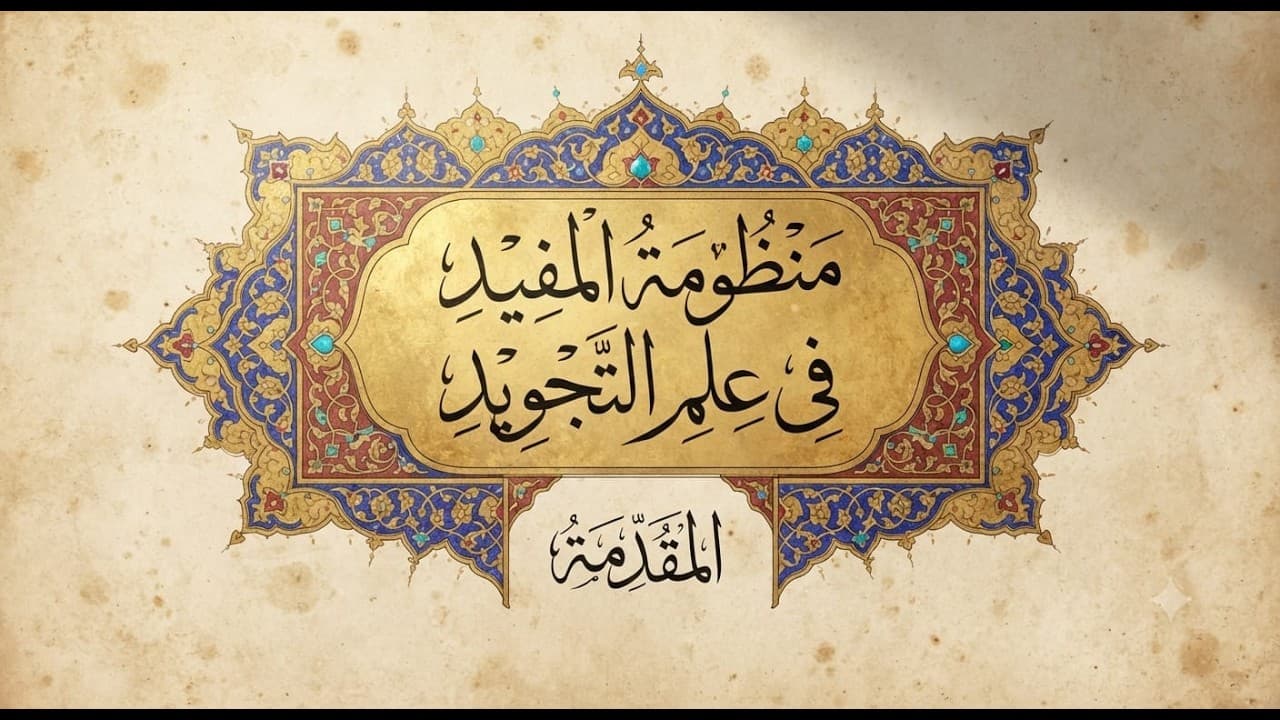 مَنْظُوْمَةُ الْمُفِيْدِ
فِي عِلِمِ التَّجْوِيْدِ
الْمُقَدِّمَةُ